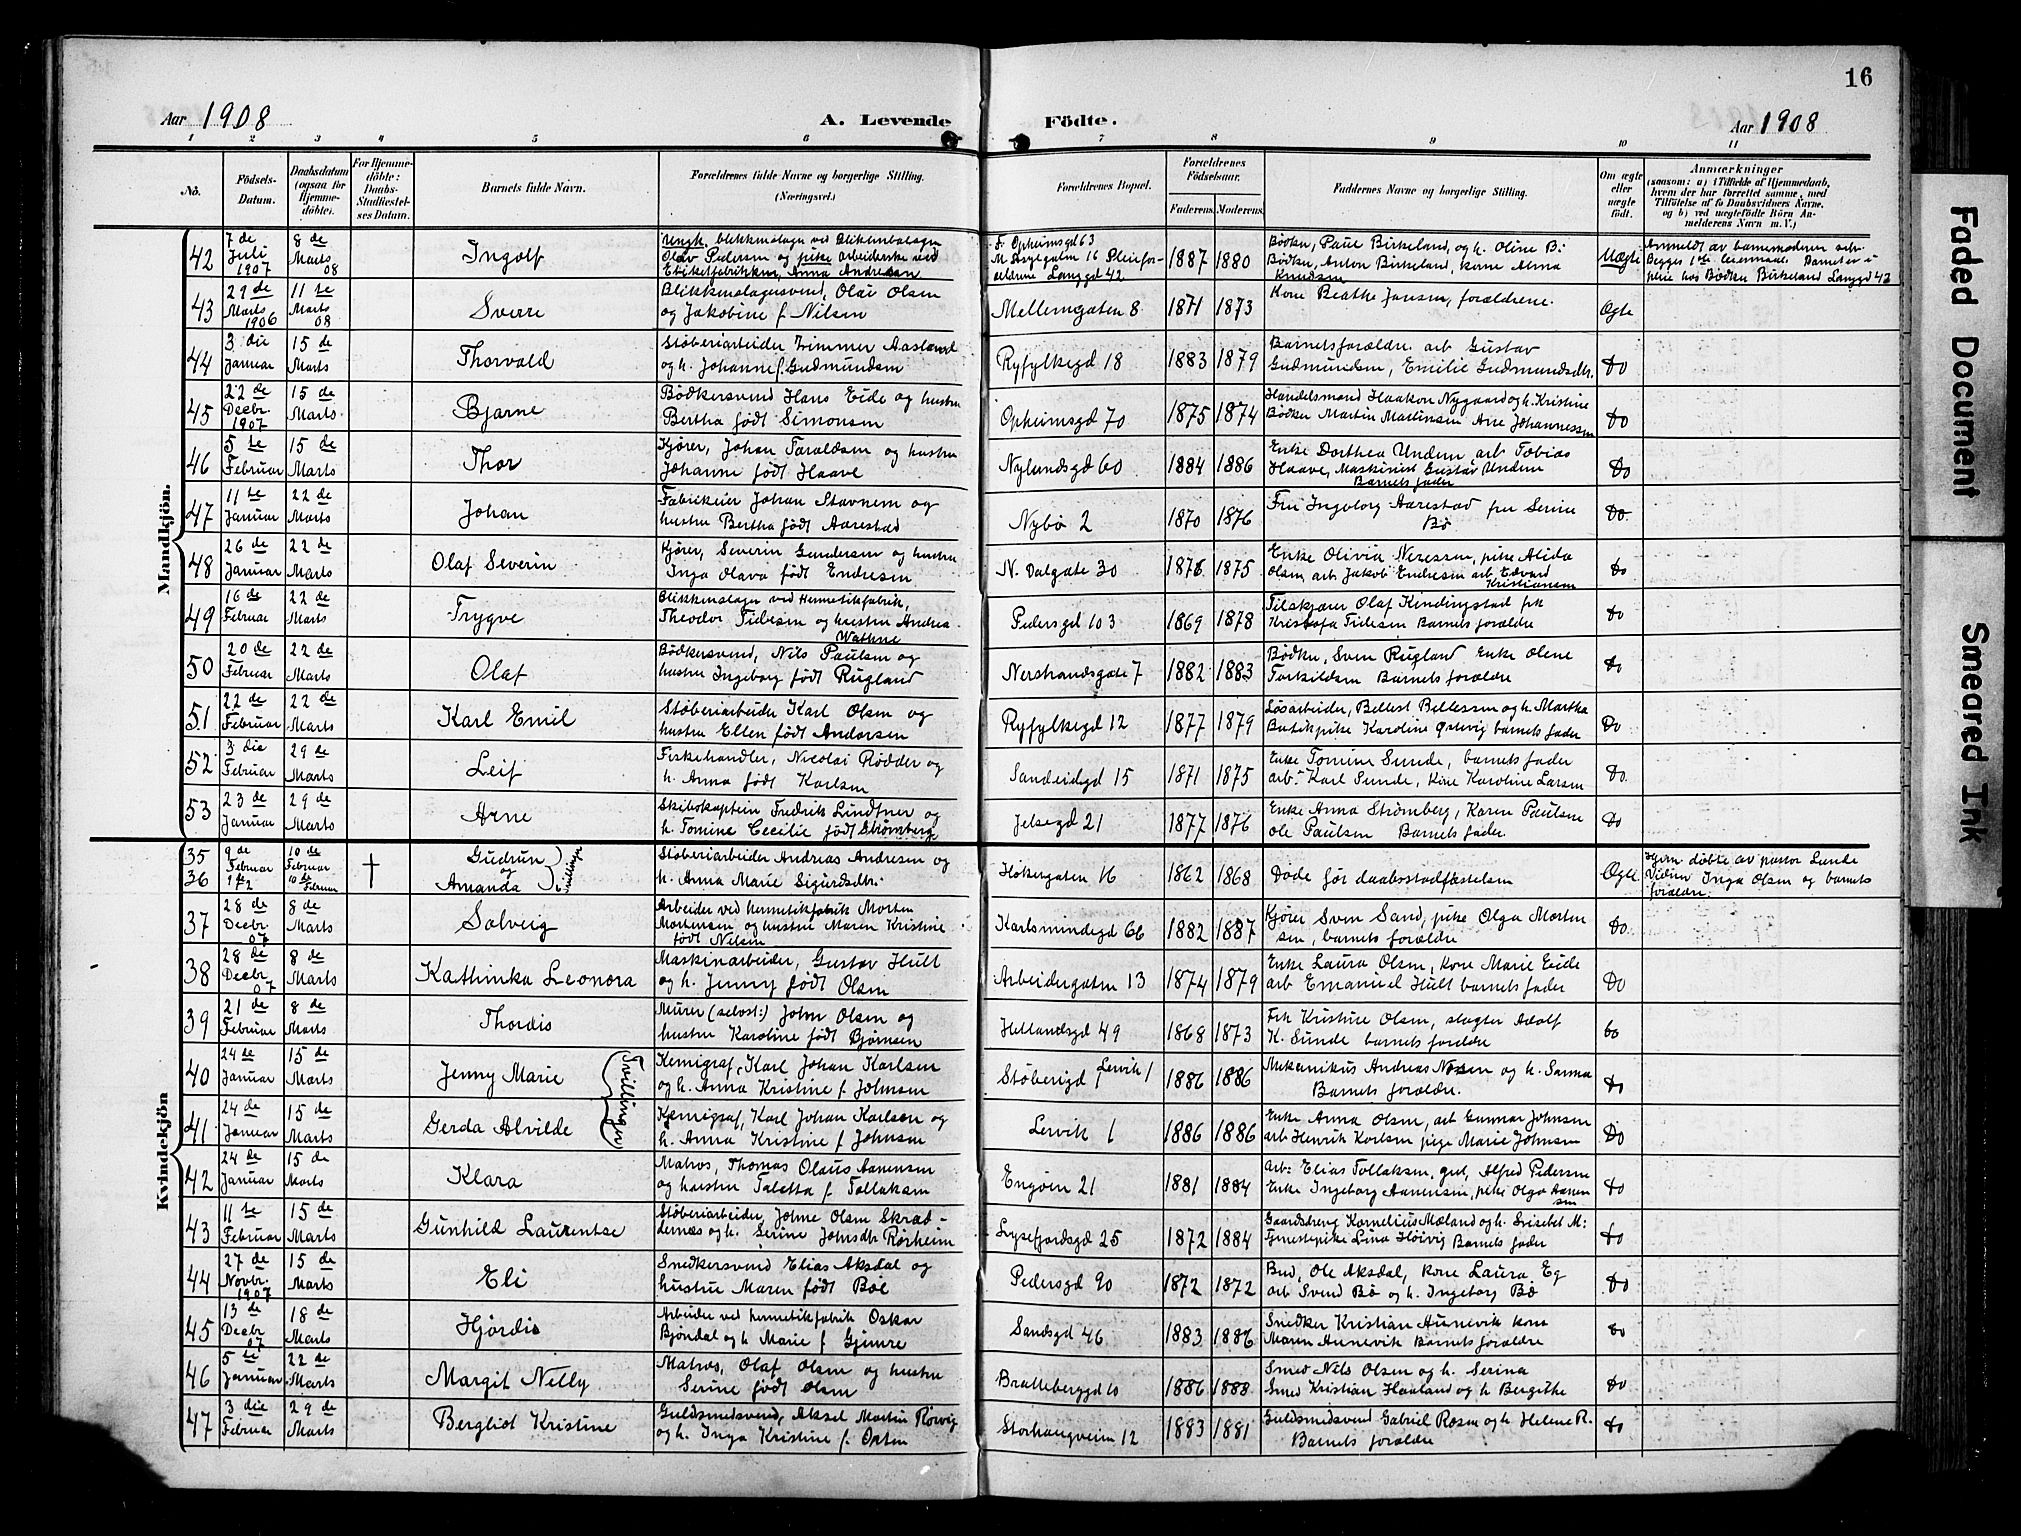 16
Aar 1908
A. Levende
Födte.
Aar 1908
1 2 3 4 5 6 7 8 9 10 11
No.
Födsels-Datum.
Daabsdatum (ogsaa for Hjemme-döbte).
For Hjemme-döbte: Daabs-Stadfæstel-ses Datum.
Barnets fulde Navn.
Forældrenes fulde Navne og borgerlige Stilling. (Næringsvei.)
Forældrenes Bopæl.
Forældrenes Födselsaar.
Faderens. Moderens.
Faddernes Navne og borgerlige Stilling.
Om ægte eller uægte födt.
Anmærkninger
(saasom: a) i Tilfælde af Hjemmedaab, hvem der har forrettet samme, med Tilföielse af to Daabsvidners Navne, og b) ved uægtefödte Börn An-melderens Navn m. V.)
Mandkjön.
42 7 de Juli 1907 8 de Marts 08 Ingolf
Ungk. blikkenslager ved Blikkenbalagen
Olav Pedersen og pike arbeiderske ved
Etiketfabrikken, Anna Andresen
F. Opheimsgd 63
1887 1880
Bødker, Paul Birkeland, og h. Oline B:
Bødker, Anton Birkeland, kone Alma
Knudsen
Uægte
pleie hos Bødker Birkeland Langgd 42
43 29 de Marts 1906 11 te Marts 08 Sverre
Blikkenslagersvend, Olai Olsen
og Jakobine f. Nilsen
Mellemgaten 8 1871 1873
Kone Beathe Jansen, forældrene.
Ægte
44 3 die Januar 15 de Marts Thorvald
Støberiarbeider Zimmer Aasland
og h. Johanne f. Gudmundsen
Ryfylkegd 18 1883 1879
Barnets forældre. arb Gustav
Gudmundsen, Emilie Gudmundsdtr.
Do
45 22 de Decbr. 1907 15 de Marts. Bjarne
Bødkersvend Hans Eide og hustru
Bertha født Simonsen
Opheimsgd 70 1875 1874
Handelsmand Haakon Nygaard og h. Kristine
Bødker Martin Martinsen Ane Johannessen
Do
46 5 te Februar 15 de Marts Thor
Kjører, Johan Taraldsen og hustru
Johanne født Haave
Nylundsgd 60 1884 1886
Enke Dorthea Undem, arb Tobias
Haave, Maskinist Gustav Undem
Barnets fader
Do
47 11 te Januar 22 de Marts Johan
Fabrikeier Johan Stavnem og
hustru Bertha født Aarestad
Nybø 2 1870 1876
Fru Ingeborg Aarestad fru Serine
Bø
Do.
48 26 de Januar 22 de Marts Olaf Severin
Kjører, Severin Gundersen og hustru
Inga Olava født Endresen
N. Dalgate 30 1876 1875
Enke Olivia Neressen, pike Alida
Olsen arb Jakob Endresen arb. Edvard
Kristiansen
Do
49 16 de Februar 22 de Marts Trygve
Blikkenslager ved Hermetikfabrik,
Theodor Tidesen og hustru Andrea
Wathne
Pedersgd 103 1869 1878
Tilskjærer Olaf Kindingstad frk
Kristofa Tidesen Barnets forældre
Do
50 20 de Februar 22 de Marts Olaf
Bødkersvend, Nils Paulsen og
hustru Ingeborg født Rugland
Nerstrandsgate 7 1882 1883
Bødker, Sven Rugland Enke Olene
Torkildsen Barnets forældre
Do
51 22 de Februar 22 de Marts Karl Emil
Støberiarbeider Karl Olsen og
hustru Ellen født Andorsen
Ryfylkegd 12 1877 1879
Løsarbeider, Bellest Bellessen og h. Martha
Butikpike Karoline Østevig barnets fader
Do
52 3 die Februar 29 de Marts Leif
Fiskehandler, Nicolai Rødder og
h. Anna født Karlsen
Sandeidgd 15 1871 1875
Enke Tomine Sunde, barnets fader
arb. Karl Sunde, Kone Karoline Larsen
Do.
53 23 de Januar 29 de Marts Arne
Skibskaptein Fredrik Lindtner og
h. Tomine Cecilie født Strømberg
Jelsegd 21 1877 1876
Enke Anna Strømberg, Karen Paulsen
Ole Paulsen Barnets fader.
Do
Kvindekjön
35 36 9 de Februar 1 te 2 10 de Februar 10 de Februar † Gudrun og Amanda Tvillinger
Støberiarbeider Andreas Andresen og
h. Anna Marie Sigurdsdtr.
Høkergaten 16 1862 1868
Døde før daabsstadfæstelsen
Ægte
Hjem døbte av pastor Lunde
Vidner Inga Olsen og barnets
forældre.
37 28 de Decbr 07 8 de Marts Solveig
Arbeider ved hermetikfabrik Morten
Mortensen og hustru Maren Kristine
født Nilsen
Karlsmindegd 66 1882 1887
Kjører Sven Sand, pike Olga Morten
sen, barnets forældre
Do.
38 28 de Decbr 07 8 de Marts Kathinka Leonora
Maskinarbeider, Gustav Hult
og h. Jenny født Olsen
Arbeidergaten 13 1874 1879
Enke Laura Olsen, kone Marie Eide
arb Emanuel Hult barnets fader
Do
39 21 de Februar 8 de Marts Thordis
Murer (selvst:) John Olsen og
hustru Karoline født Bjørnsen
Hetlandsgd 49 1868 1873
Frk Kristine Olsen, slagter Adolf
K. Sunde barnets forældre
Do
40 24 de Januar 15 de Marts Jenny Marie Tvillinger
Kemigraf, Karl Johan Karlsen
og h. Anna Kristine f. Johnsen
Støberigd 1 Lervik 1 1886 1886
Mekanikus Andreas Nilsen og h. Sanna
Barnets forældre.
Do
41 24 de Januar 15 de Marts Gerda Alvilde
Kjemigraf, Karl Johan Karlsen og
h. Anna Kristine f Johnsen
Lervik 1 1886 1886
Enke Anna Olsen, arb Gunnar Johnsen
arb Henrik Karlsen pige Marie Johnsen
Do
42 24 de Januar 15 de Marts Klara
Matros, Thomas Olaus Aanensen
og hustru Taletta f. Tollaksen
Engøen 21 1881 1884
arb: Elias Tollaksen, gut, Alfred Pedersen
Enke Ingeborg Aanensen, pike Olga Aanen
sen
Do
43 11 te Februar 15 de Marts Gunhild Laurentse
Støberiarbeider, Johne Olsen Skrad-
dernæs og h. Serine Johnsdtr Rørheim
Lysefjordsgd 25 1872 1884
Gaardsdreng Kornelius Mæland og h. Svisebet M:
Tjenestepike Lina Høivig Barnets fader
Do
44 27 de Novbr. 1907 15 de Marts Eli
Snedkersvend Elias Aksdal og
hustru Maren født Bøe
Pedersgd 90 1872 1872
Bud, Ole Aksdal, kone Laura Eg
arb Svend Bø og h. Ingeborg Bø
Do
45 13 de Decbr 07 18 de Marts Hjørdis
Arbeider ved hermetikfabrik Oskar
Bjøndal og h Marie f. Gjemre
Sandsgd 46 1883 1886
Snedker Kristian Aunevik kone
Maren Aunevik Barnets forældre
Do
46 5 te Januar 22 de Marts Margit Nelly
Matros, Olaf Olsen og hustru
Serine født Olsen
Brattebergd 10 1886 1888
Smed Nils Olsen og h. Serina
Smed Kristian Haaland og h Bergithe
Do
47 3 die Februar 29 de Marts Bergliot Kristine
Guldsmedsvend, Aksel Martin Rørvig
og h. Inga Kristine f. Osten
Storhaugveien 12 1883 1881
Guldsmedsvend Gabriel Rosen og h. Helene R.
Barnets forældre
Do
Faded Document
Smeared Ink